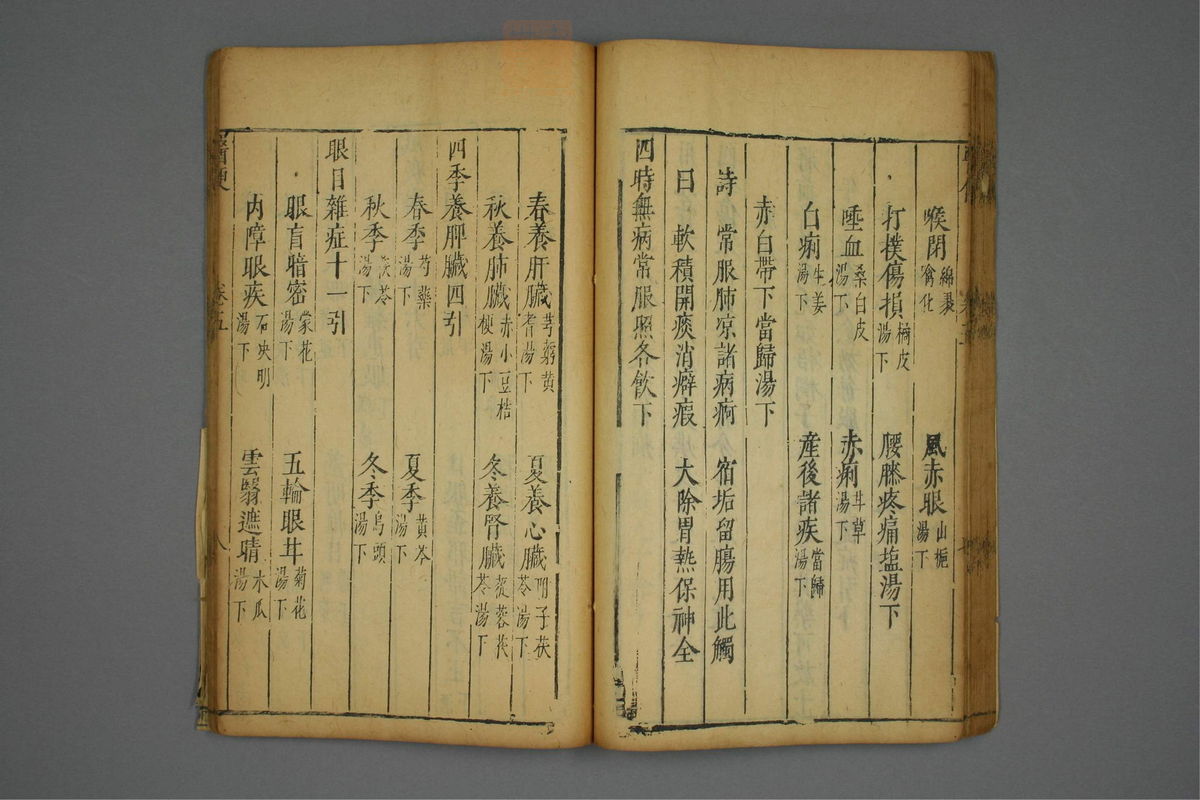 喉閉綿裹噙化 風赤眼山梔湯下
打撲傷損橘皮湯下 腰膝疼痛塩湯下
唾血桑白皮湯下 赤痢甘草湯下
白痢生姜湯下 産後諸疾當歸湯下
赤白帶下當歸湯下
詩 常服肺凉諸病痾 宿垢留腸用此觸
曰 軟積開痰消癖瘕 大除胃熱保神全
四時無病常服照各飲下
春養肝臓芎藭黄耆湯下 夏養心臓明子茯苓湯下
秋養肺臓赤小豆桔梗湯下 冬養腎臓蓯蓉茯苓湯下
四季養脾臓四引
春季芍藥湯下 夏季黄芩湯下
秋季茯苓湯下 冬季烏頭湯下
眼目雜症十一引
眼盲暗密蒙花湯下 五輪眼甘菊花湯下
内障眼疾石决明湯下 雲翳遮睛木瓜湯下
卷五
八